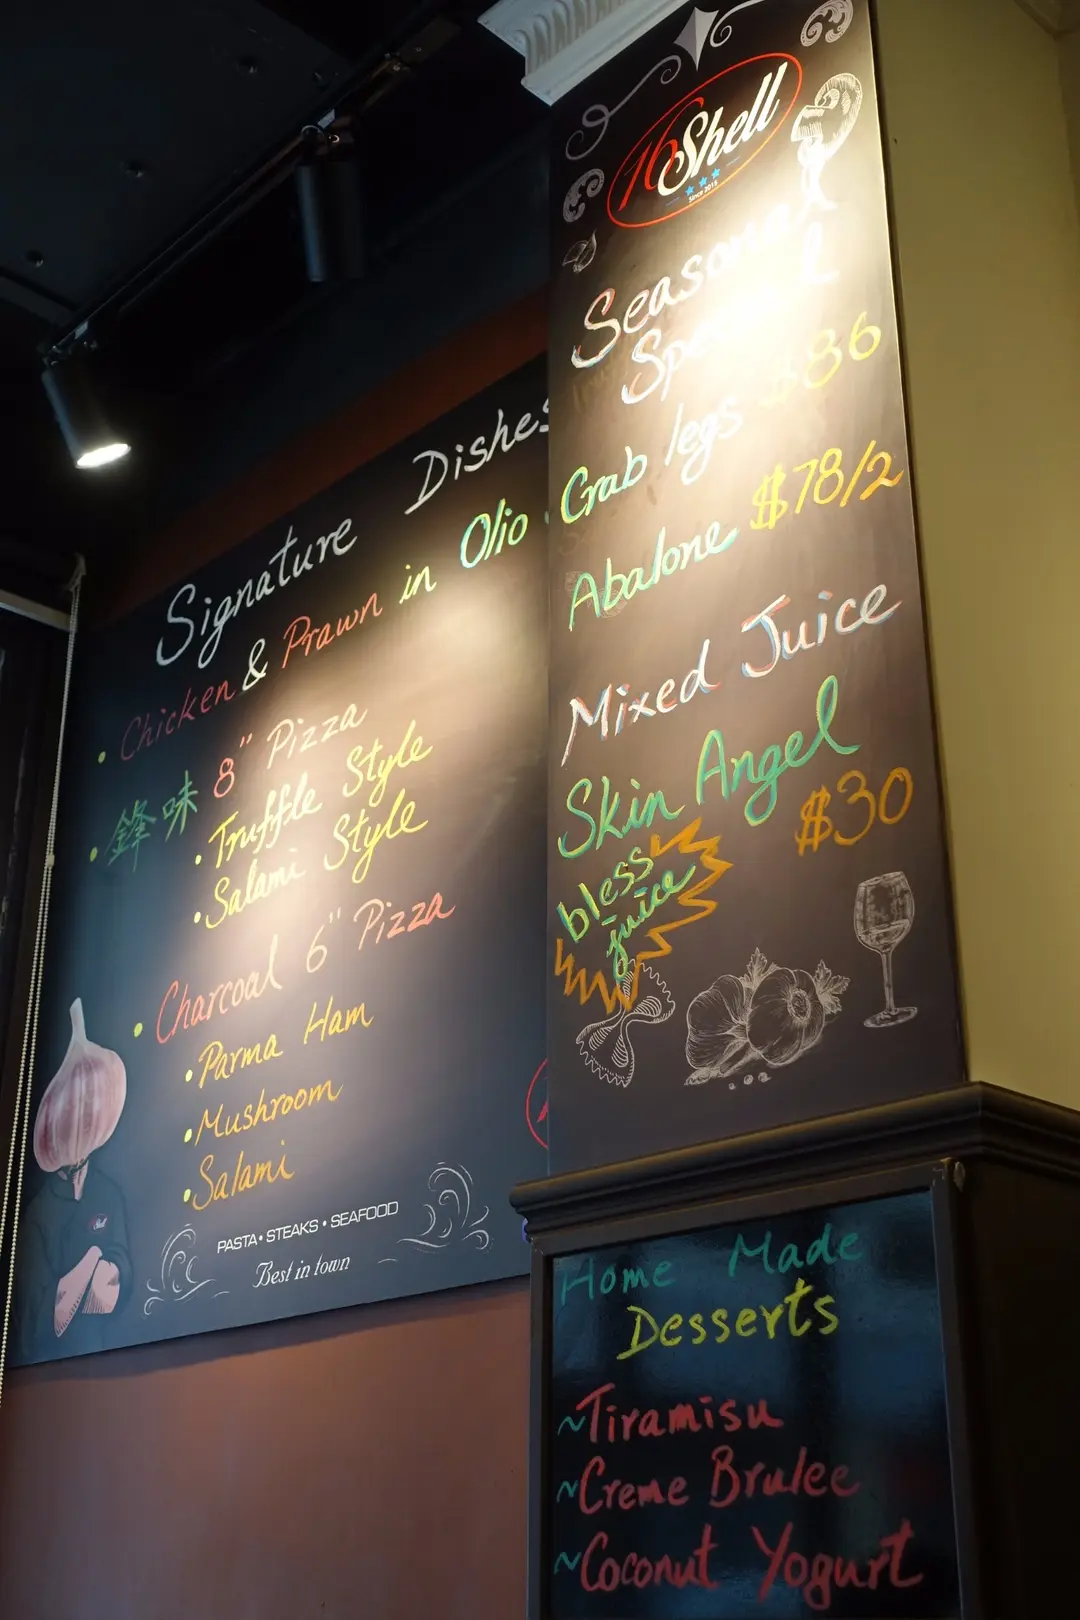 Signature Dishes
• Chicken & Prawn in Olio
• 鋒味 8" Pizza
• Truffle Style
• Salami Style
• Charcoal 6" Pizza
• Parma Ham
• Mushroom
• Salami
PASTA • STEAKS • SEAFOOD
Best in town
Shell
16 Shell
Since 2015
Seasonal
Special
Crab legs $86
Abalone $78/2
Mixed Juice
Skin Angel
$30
bless
juice
Home Made
Desserts
~Tiramisu
~Creme Brulee
~Coconut Yogurt